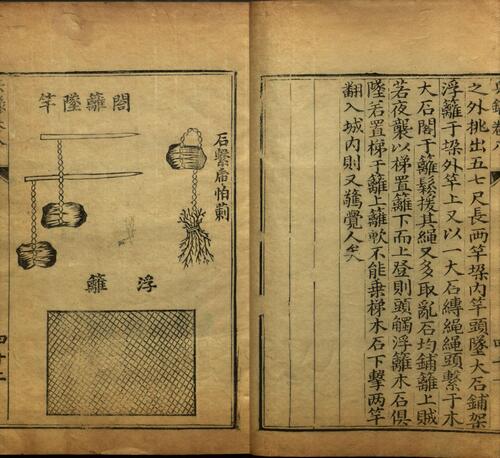 之外挑出五七尺長兩竿垜内竿頭墜大石鋪架
浮籬于垜外竿上又以一大石縛繩繩頭繫于木
大石閣于籬鬆援其繩又多取亂石均鋪籬上賊
若夜襲以梯置籬下而上登則頭觸浮籬木石俱
墜若置梯于籬上籬軟不能乗梯木石下擊兩竿
翻入城内則又驚覺人矣
閣籬墜竿
石繫
浮籬
四十二